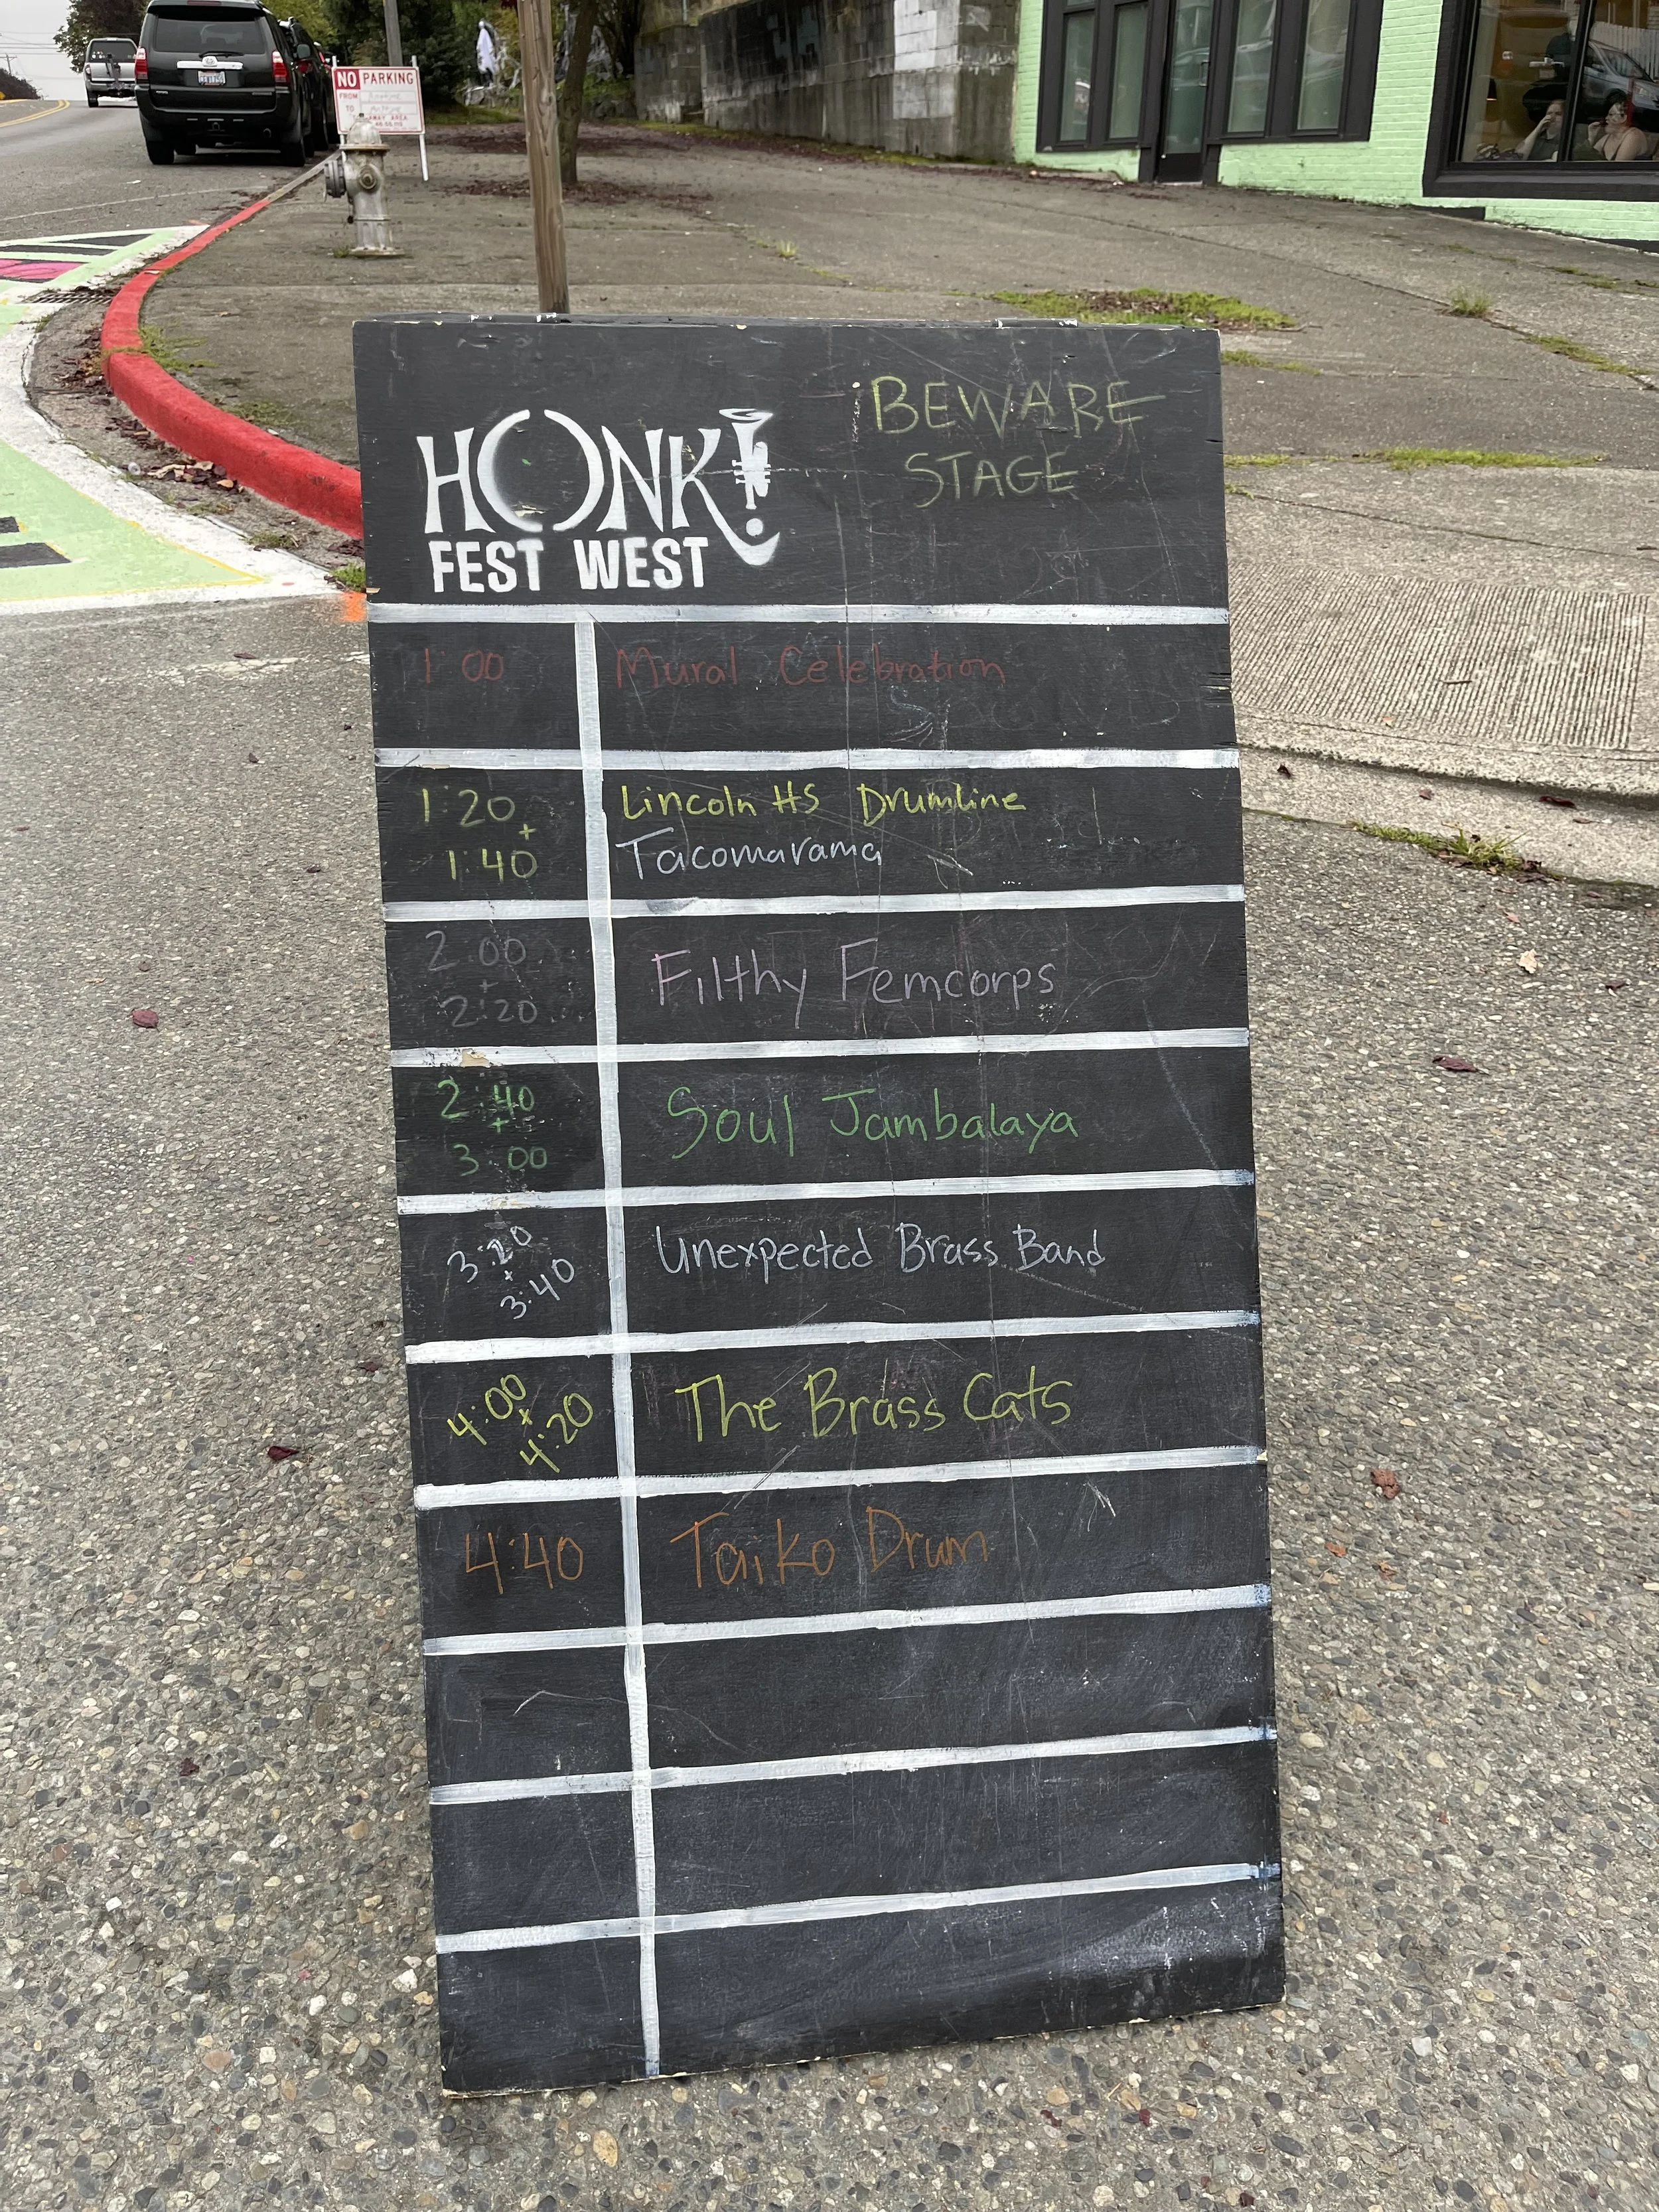 NO PARKING
FROM
TO
HONK!
FEST WEST
BEWARE
STAGE
1:00 Mural Celebration
1:20 Lincoln HS Drumline
+
1:40 Tacomarama
2:00
+
2:20
Filthy Femcorps
2:40
+
3:00
Soul Jambalaya
3:20
+
3:40
Unexpected Brass Band
4:00
+
4:20
The Brass Cats
4:40 Taiko Drum